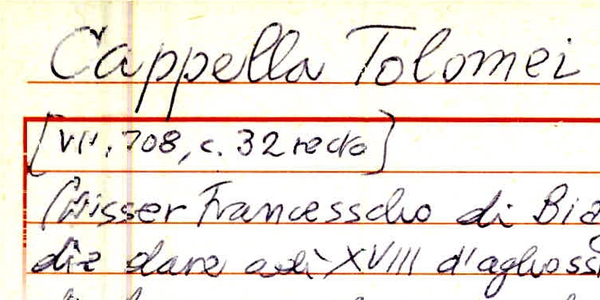 Cappella Tolomei
[VII, 708, c. 32 recto]
Misser Francesscho di Bia
die dare adì XVIII d'aghoss